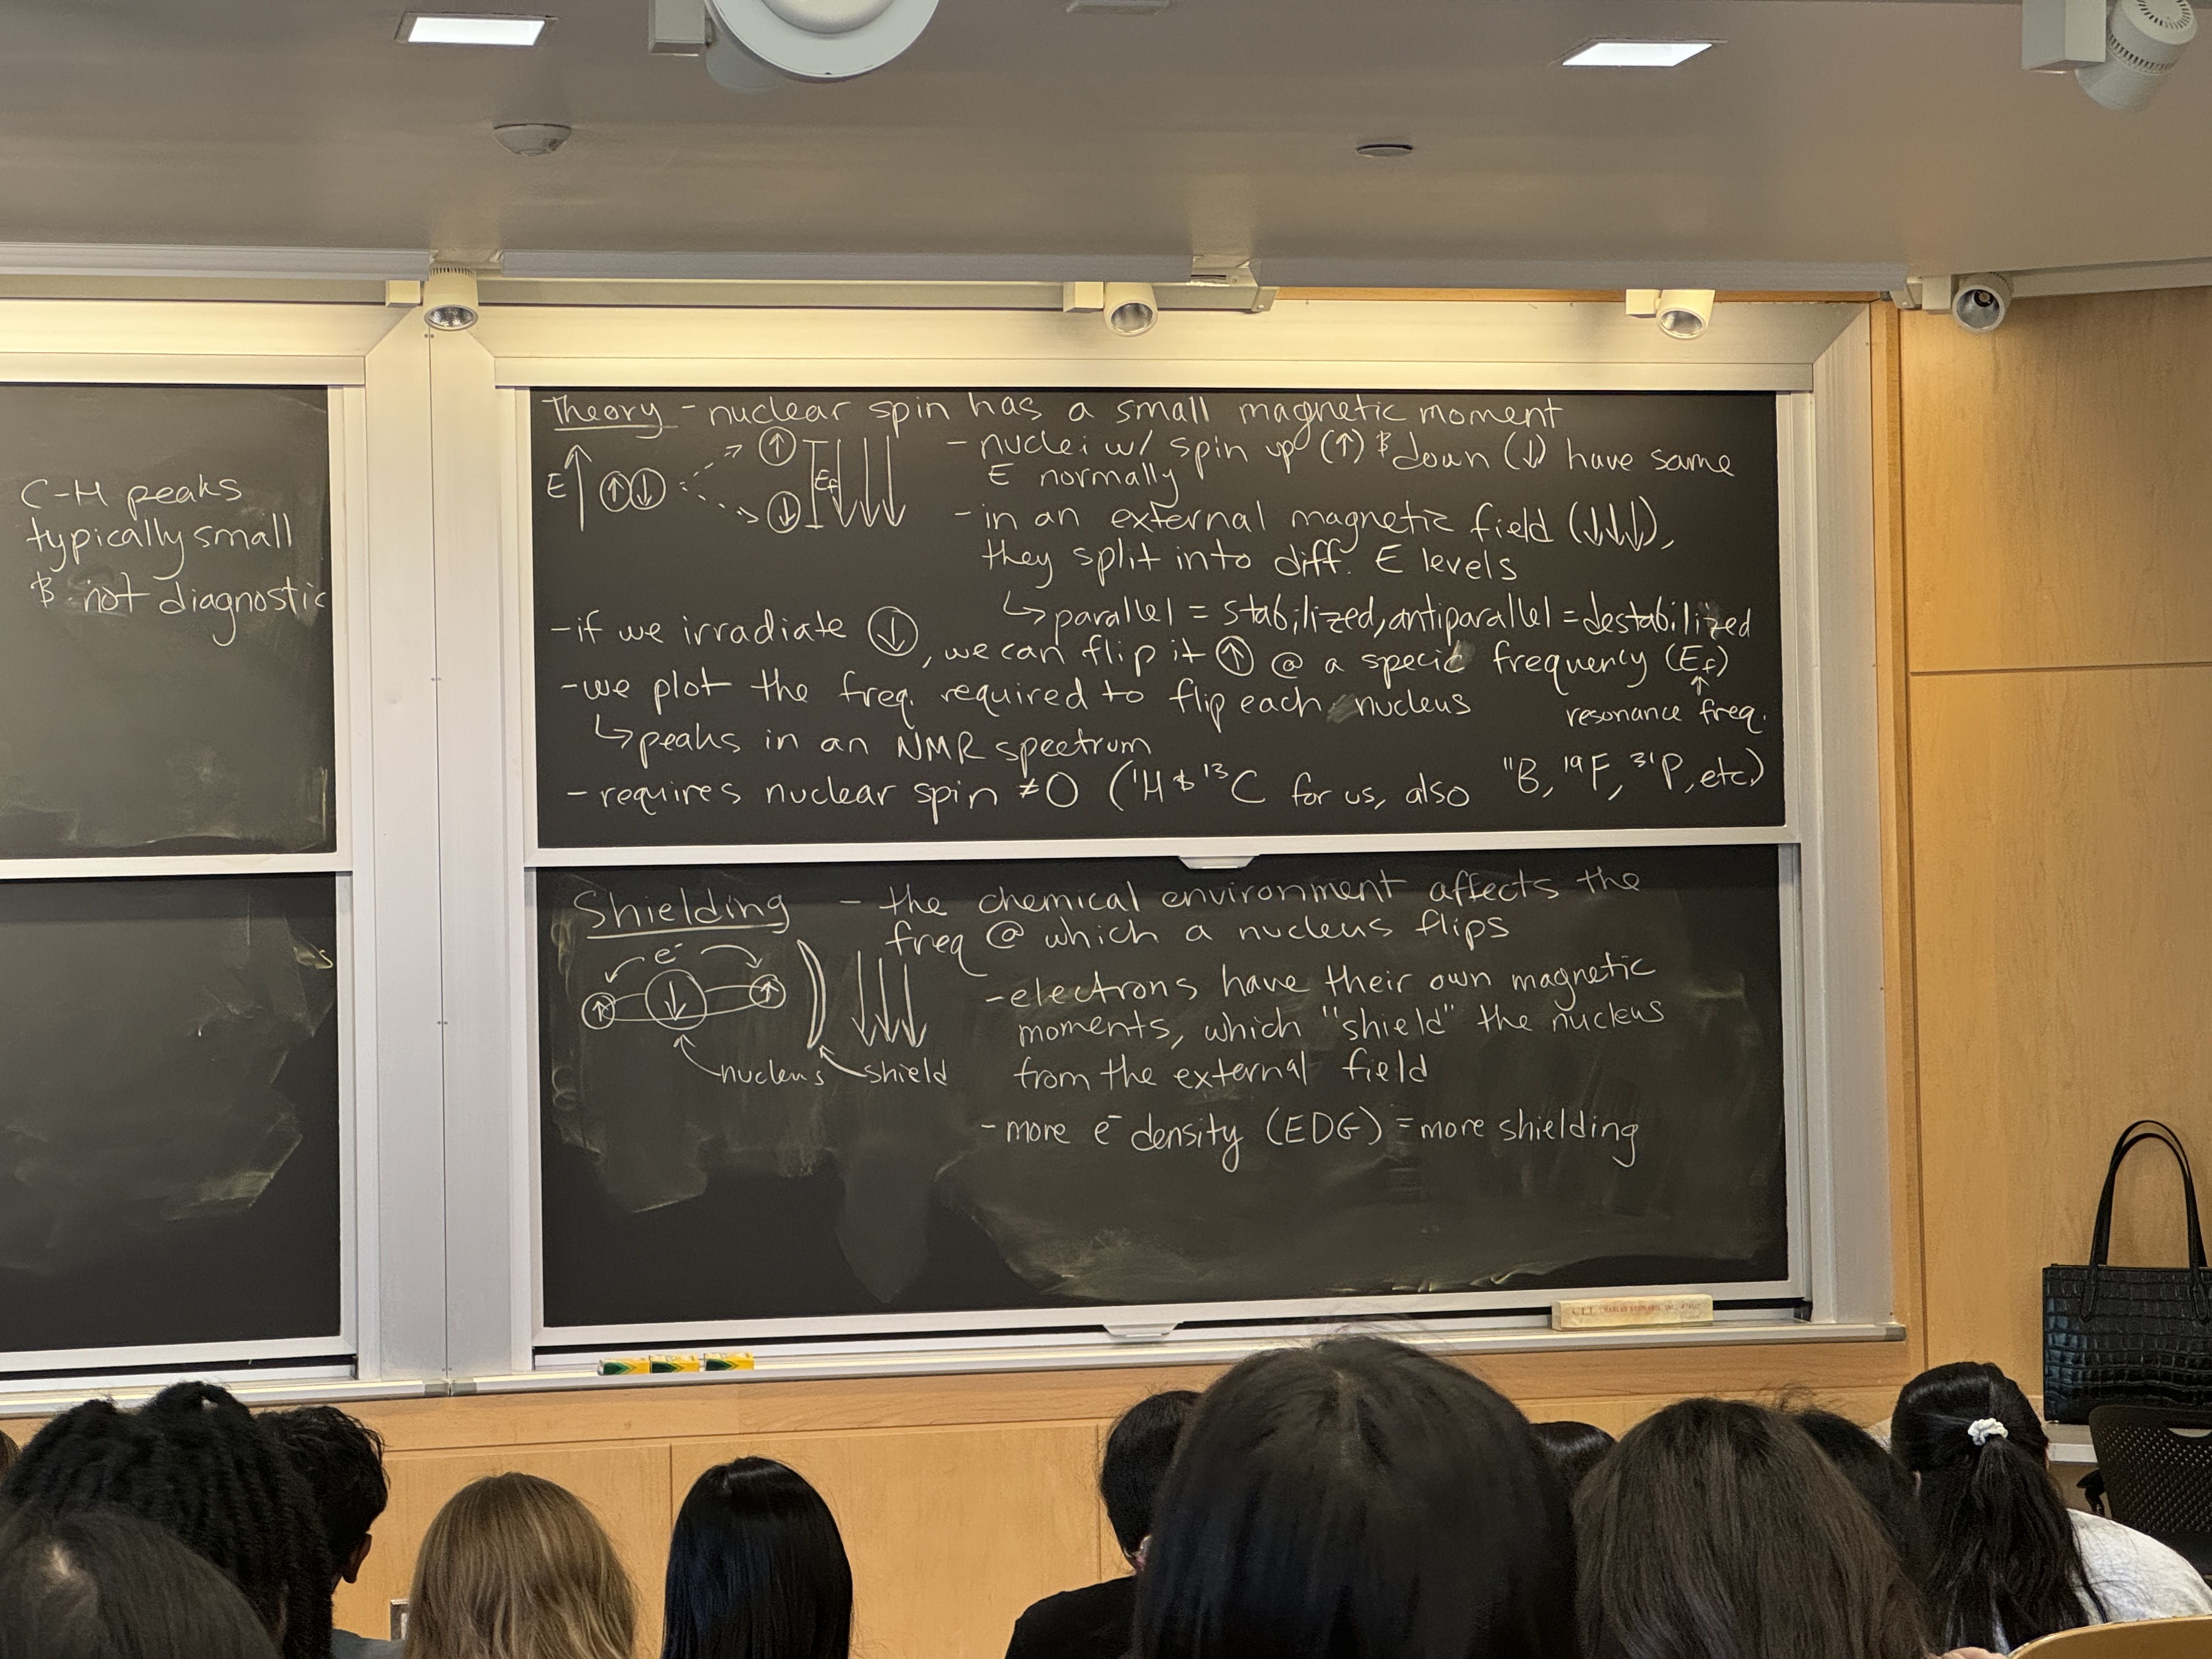 C-H peaks
typically small
& not diagnostic
Theory - nuclear spin has a small magnetic moment
E ↑ ↑ ↓ ↑ ↓ Ef
- nuclei w/ spin up (↑) & down (↓) have same
E normally
- in an external magnetic field (↓↓↓),
they split into diff. E levels
↳ parallel = stabilized, antiparallel = destabilized
- if we irradiate ↓, we can flip it ↑ @ a specic frequency (Ef)
↑
resonance freq.
- we plot the freq. required to flip each nucleus
↳ peaks in an NMR spectrum
- requires nuclear spin ≠ 0 (¹H & ¹³C for us, also ¹¹B, ¹⁹F, ³¹P, etc)
Shielding - the chemical environment affects the
freq @ which a nucleus flips
e⁻
↑ ↓ ↑
nucleus shield
- electrons have their own magnetic
moments, which "shield" the nucleus
from the external field
- more e⁻ density (EDG) = more shielding